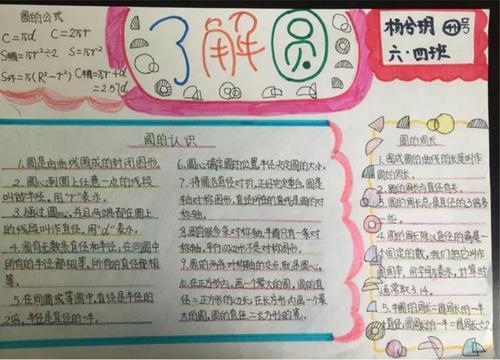 圆的公式
C=πd C=2πr
S半圆=πr²÷2 S=πr²
S环=π(R²-r²) C半圆=πr+d
=2.57d
了解圆
杨兮玥 号
六·四班
圆的认识
1.圆是由曲线围成的封闭图形.
2.圆心到圆上任意一点的线段
叫做半径,用"r"表示。
3.通过圆心,并且两端都在圆上
的线段叫作直径,用"d"表示。
4.圆有无数条直径和半径,在同圆中
所有的半径都相等,所有的直径都相
等。
5.在同圆或等圆中,直径是半径的
2倍,半径是直径的一半.
6.圆心确定圆的位置,半径决定圆的大小.
7.将圆沿直径对折,正好完全重合,圆是
轴对称图形,直径所在的直线是圆的对
称轴。
8.圆有很多条对称轴,半圆只有一条对
称轴,平行四边形不是对称图形.
9.圆的两条对称轴的交点,就是圆心。
10.在正方形内,画一个最大的圆,圆的直
径=正方形的边长;在长方形内画一个最
大的圆,圆的直径=长方形的宽。
圆的周长
1.围成圆的曲线的长度叫作
圆的周长.
2.圆的周长与直径有关。
3.圆的周长总是直径的3倍多
一些.
4.圆的周长除以直径的商是一
个固定的数,我们把它叫作
圆周率,用字母π表示,计算时
通常取3.14.
5.半圆的周长=圆周长的一半+
直径,圆周长的一半=圆周长÷2